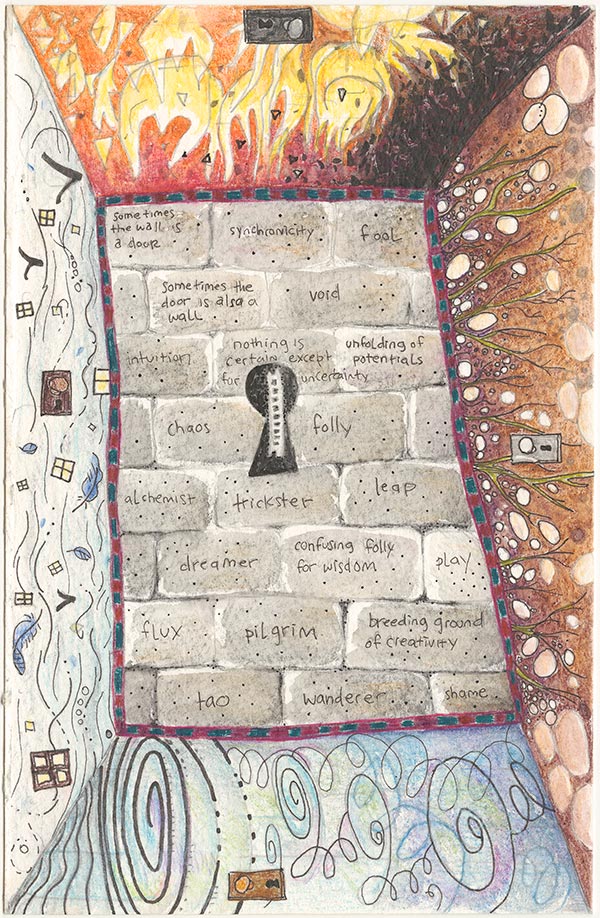 some times
the wall is
a door
synchronicity
fool
sometimes the
door is also a
wall
void
intuition
nothing is
certain except
for uncertainty
unfolding of
potentials
chaos
folly
alchemist
trickster
leap
dreamer
confusing folly
for wisdom
play
flux
pilgrim
breeding ground
of creativity
tao
wanderer
shame